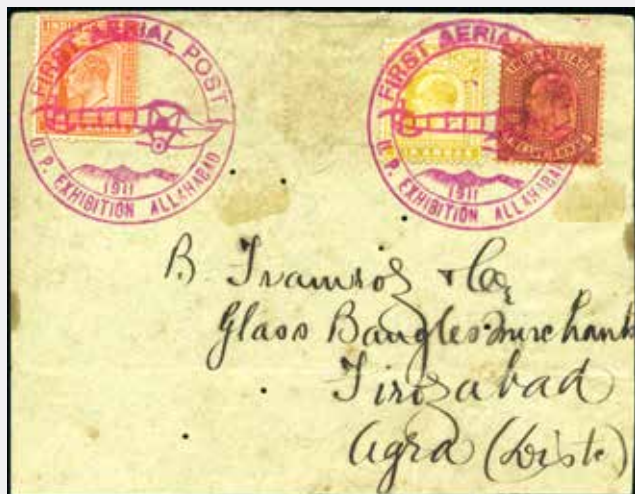 FIRST AERIAL POST
1911
U. P. EXHIBITION ALLAHABAD
FIRST AERIAL
1911
U. P. EXHIBITION ALLAHABAD
INDIA POSTAGE
B. & Co,
Glass Bangles Merchant
Firozabad
Agra (Distc)